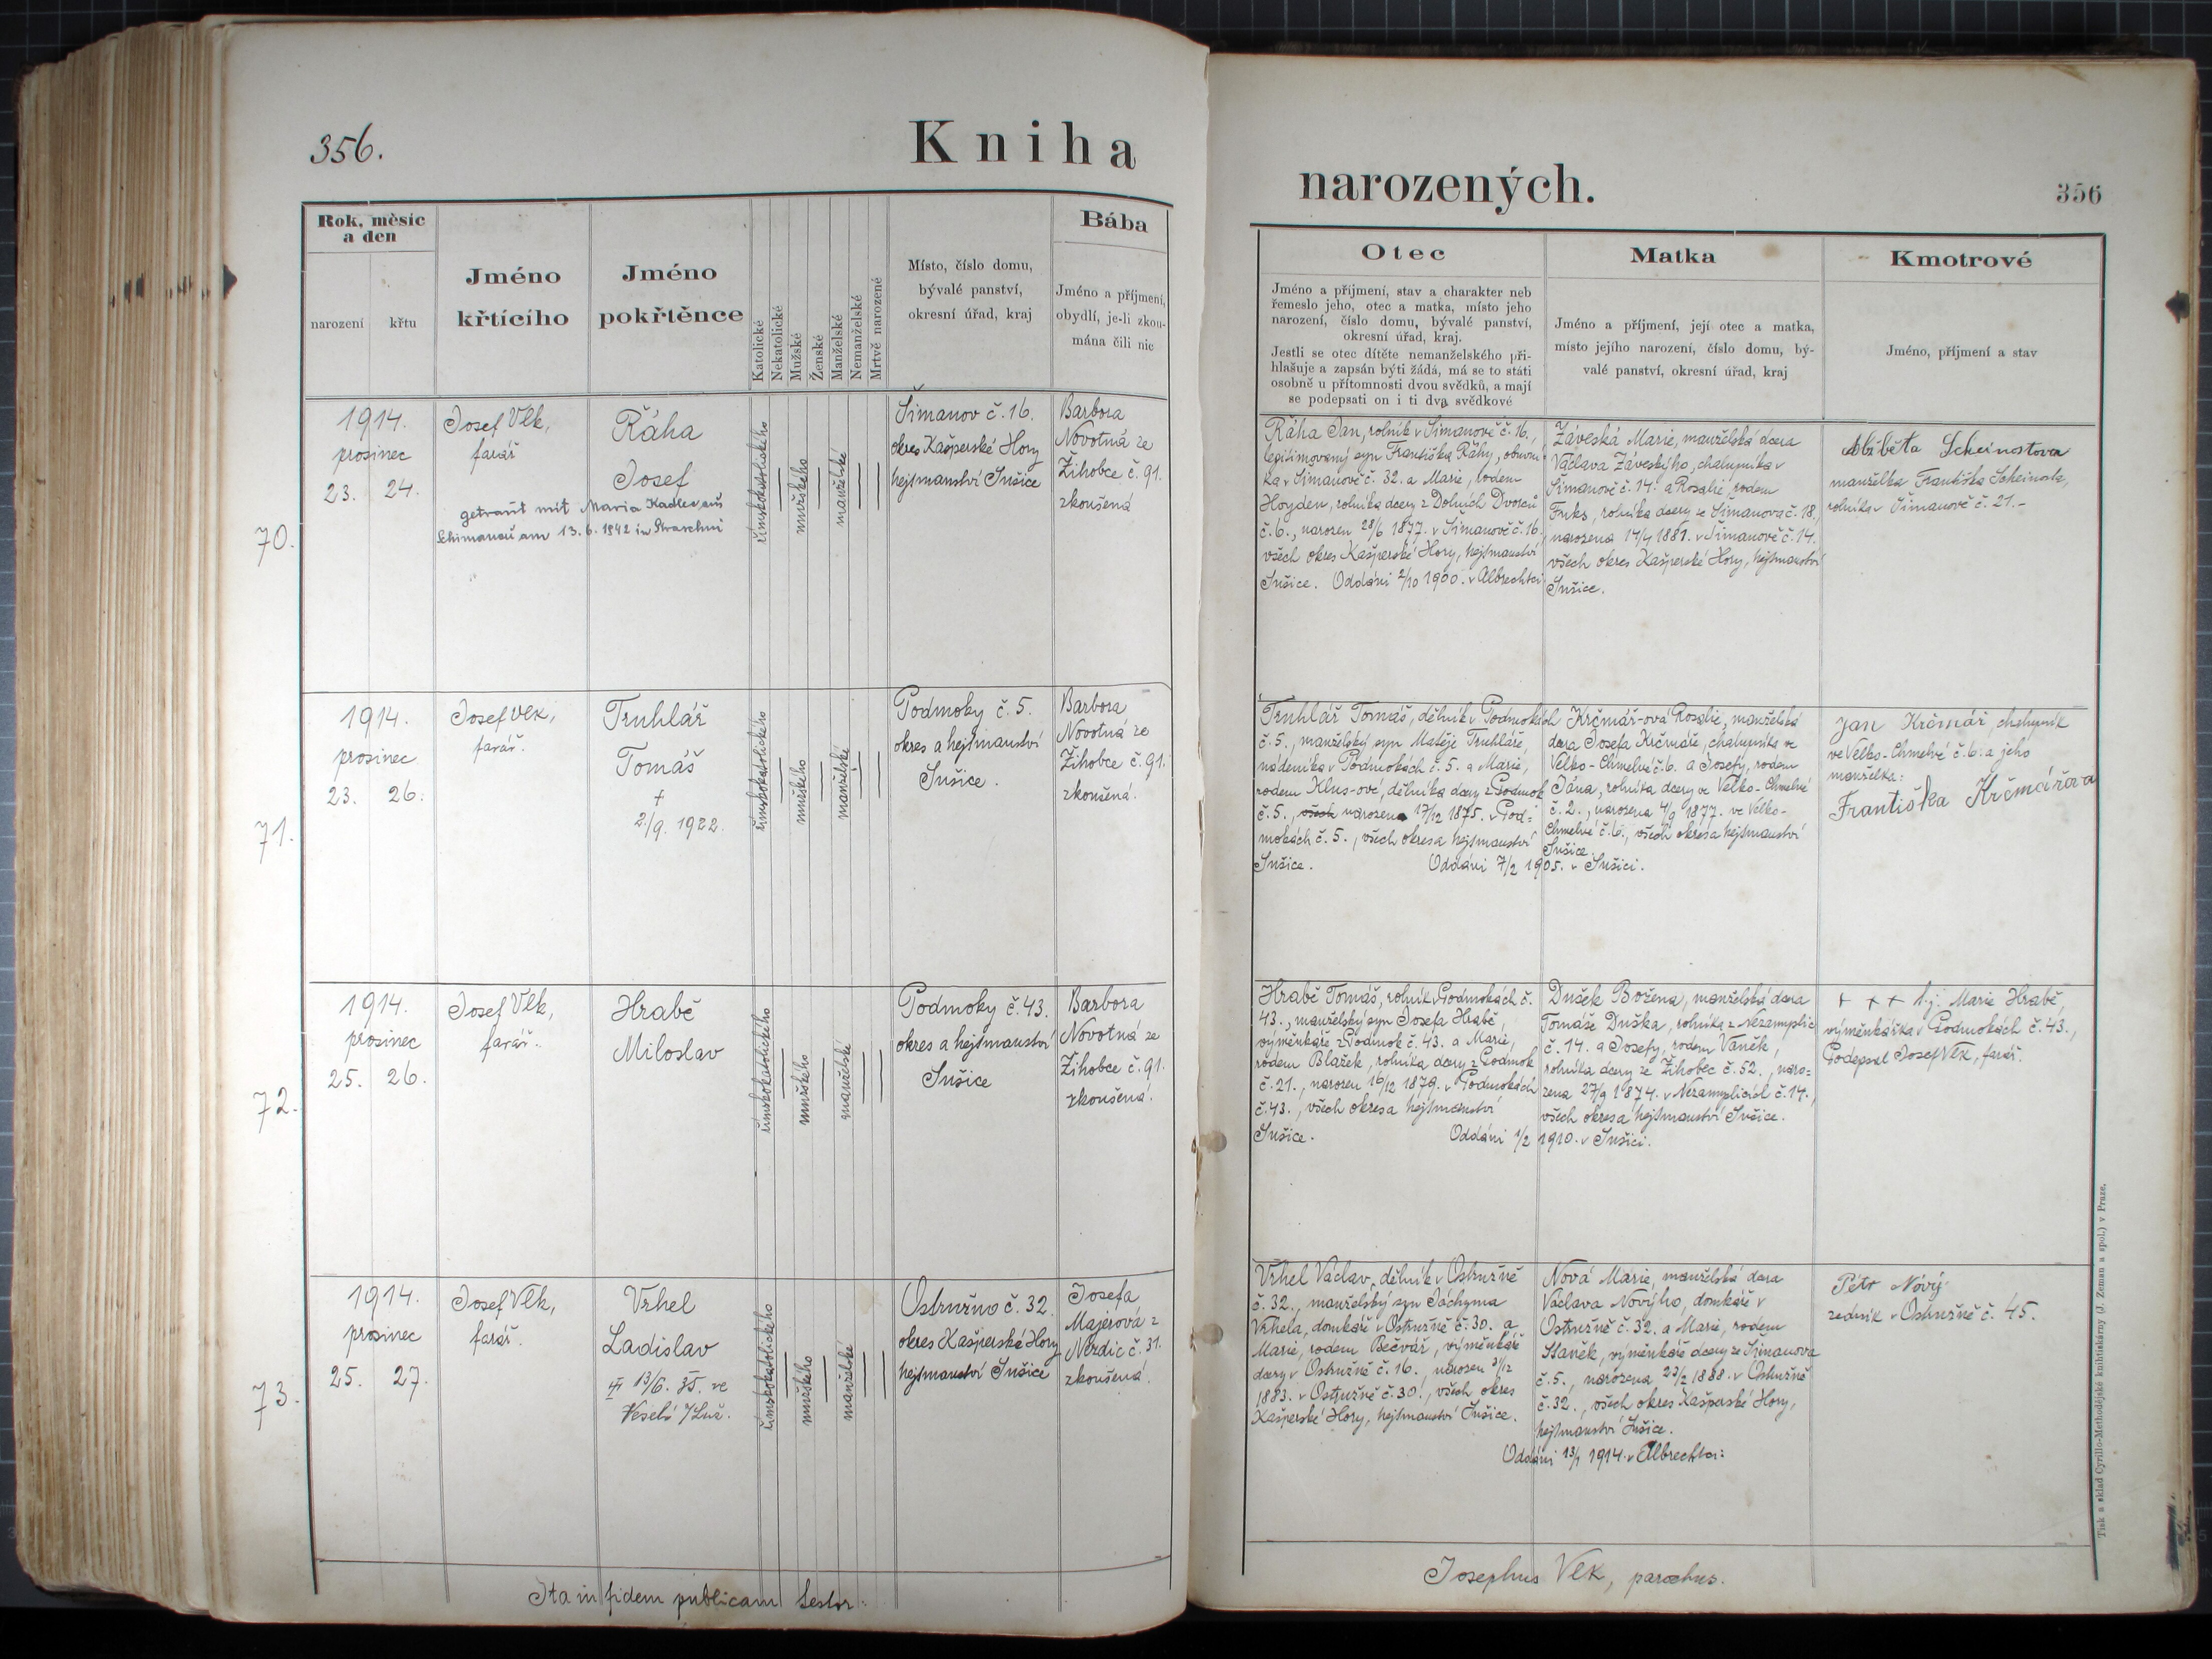 356.
Kniha
Rok, měsíc
a den
narození
křtu
Jméno
křtícího
Jméno
pokřtěnce
Katolické
Nekatolické
Mužské
Ženské
Manželské
Nemanželské
Mrtvě narozené
Místo, číslo domu,
bývalé panství,
okresní úřad, kraj
Bába
Jméno a příjmení,
obydlí, je-li zkou-
mána čili nic
70.
1914.
prosinec
23. 24.
Josef Vlk,
farář
Řáha
Josef
getraut mit Maria Kadlec aus
Schimanau am 13. 6. 1942 in Straschin
římskokatolického
mužského
manželské
Šimanov č. 16.
okres Kašperské Hory
hejtmanství Sušice
Barbora
Novotná ze
Žihobce č. 91.
zkoušená
71.
1914.
prosinec
23. 26.
Josef Vlk,
farář.
Truhlář
Tomáš
†
2./9. 1922.
římskokatolického
mužského
manželské
Podmoky č. 5.
okres a hejtmanství
Sušice.
Barbora
Novotná ze
Žihobce č. 91.
zkoušená.
72.
1914.
prosinec
25. 26.
Josef Vlk,
farář.
Hrabě
Miloslav
římskokatolického
mužského
manželské
Podmoky č. 43.
okres a hejtmanství
Sušice
Barbora
Novotná ze
Žihobce č. 91.
zkoušená.
73.
1914.
prosinec
25. 27.
Josef Vlk,
farář.
Vrhel
Ladislav
13/6. 35. ve
Veselí 7/Luž.
římskokatolického
mužského
manželské
Ostružno č. 32.
okres Kašperské Hory
hejtmanství Sušice
Josefa
Majerová z
Nezdic č. 31.
zkoušená.
Ita in fidem publicam testor:
narozených.
356
Otec
Jméno a příjmení, stav a charakter neb
řemeslo jeho, otec a matka, místo jeho
narození, číslo domu, bývalé panství,
okresní úřad, kraj.
Jestli se otec dítěte nemanželského při-
hlašuje a zapsán býti žádá, má se to státi
osobně u přítomnosti dvou svědků, a mají
se podepsati on i ti dva svědkové
Matka
Jméno a příjmení, její otec a matka,
místo jejího narození, číslo domu, bý-
valé panství, okresní úřad, kraj
Kmotrové
Jméno, příjmení a stav
Řáha Jan, rolník v Šimanově č. 16.,
legitimovaný syn Františka Řáhy, obuvní-
ka v Šimanově č. 32. a Marie, rodem
Hoyden, rolníka dcery z Dolních Dvorců
č. 6., narozen 28/6 1877. v Šimanově č. 16.
všech okres Kašperské Hory, hejtmanství
Sušice. Oddáni 2/10 1900. v Albrechtci
Záveská Marie, manželská dcera
Václava Záveského, chalupníka v
Šimanově č. 14. a Rosalie, rodem
Fuks, rolníka dcery ze Šimanova č. 18.,
narozena 14/4 1881. v Šimanově č. 14.
všech okres Kašperské Hory, hejtmanství
Sušice.
Alžběta Scheinostova
manželka Františka Scheinosta,
rolníka v Šimanově č. 21.-
Truhlář Tomáš, dělník v Podmokách
č. 5., manželský syn Matěje Truhláře,
nádeníka v Podmokách č. 5. a Marie,
rodem Klus-ové, dělníka dcery z Podmok
č. 5., všech narozen 17/12 1875. v Pod-
mokách č. 5., všech okres a hejtmanství
Sušice. Oddáni 7/2 1905. v Sušici.
Krčmář-ová Rosalie, manželská
dcera Josefa Krčmáře, chalupníka ve
Velko-Chmelné č. 6. a Josefy, rodem
Jána, rolníka dcery ve Velko-Chmelné
č. 2., narozena 4/9 1877. ve Velko-
Chmelné č. 6., všech okres a hejtmanství
Sušice.
Jan Krčmář, chalupník
ve Velko-Chmelné č. 6. a jeho
manželka:
Františka Krčmářova
Hrabě Tomáš, rolník v Podmokách č.
43., manželský syn Josefa Hrabě,
výměnkáře z Podmok č. 43. a Marie,
rodem Blažek, rolníka dcery z Podmok
č. 21., narozen 16/12 1879. v Podmokách
č. 43., všech okres a hejtmanství
Sušice. Oddáni 1/2 1910. v Sušici.
Dušek Božena, manželská dcera
Tomáše Duška, rolníka z Nezamyslic
č. 14. a Josefy, rodem Vaněk,
rolníka dcery ze Žihobec č. 52., naro-
zena 27/9 1874. v Nezamyslicích č. 14.,
všech okres a hejtmanství Sušice.
+ + + t. j. Marie Hrabě,
výměnkářka v Podmokách č. 43.,
Podepsal Josef Vlk, farář.
Vrhel Václav, dělník v Ostružně
č. 32., manželský syn Jáchyma
Vrhela, domkáře v Ostružně č. 30. a
Marie, rodem Bečvář, výměnkáře
dcery v Ostružně č. 16., narozen 31/12
1883. v Ostružně č. 30., všech okres
Kašperské Hory, hejtmanství Sušice.
Nová Marie, manželská dcera
Václava Nového, domkáře v
Ostružně č. 32. a Marie, rodem
Staněk, výměnkáře dcery ze Šimanova
č. 5., narozena 23/2 1888. v Ostružně
č. 32., všech okres Kašperské Hory,
hejtmanství Sušice.
Oddáni 13/1 1914. v Albrechtci:
Petr Nový
zedník v Ostružně č. 45.
Josephus Vlk, parochus.
Tisk a sklad Cyrillo-Methodějské knihtiskárny (J. Zeman a spol.) v Praze.